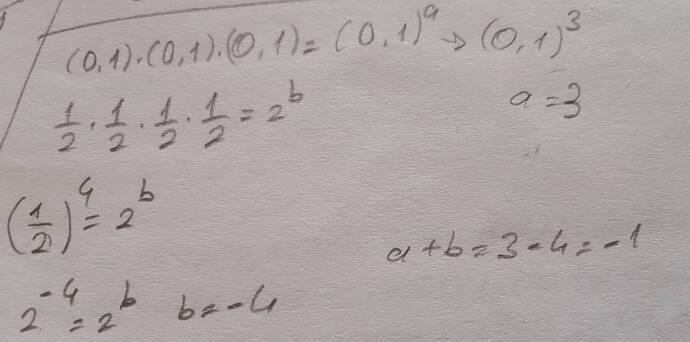 (0,1)·(0,1)·(0,1) = (0,1)^a → (0,1)^3
a = 3
1/2 · 1/2 · 1/2 · 1/2 = 2^b
(1/2)^4 = 2^b
a + b = 3 - 4 = -1
2^-4 = 2^b b = -4